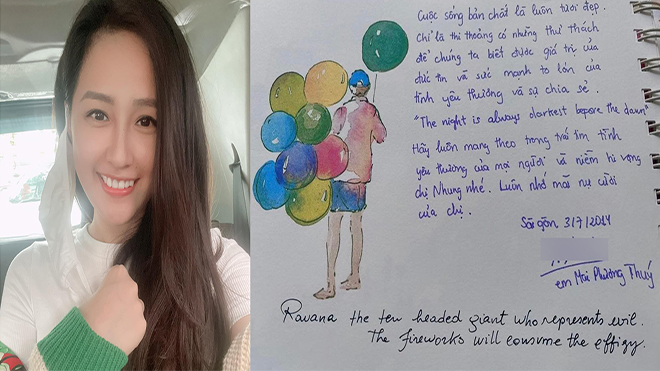 Cuộc sống bản chất là luôn tươi đẹp.
Chỉ là thi thoảng có những thử thách
để chúng ta biết được giá trị của
đức tin và sức mạnh to lớn của
tình yêu thương và sự chia sẻ.
"The night is always darkest before the dawn"
Hãy luôn mang theo trong trái tim tình
yêu thương của mọi người và niềm hi vọng
chị Nhung nhé. Luôn nhớ mãi nụ cười
của chị.
Sài gòn 31/7/2014
em Mai Phương Thuý
Ravana the ten headed giant who represents evil.
The fireworks will consume the effigy.